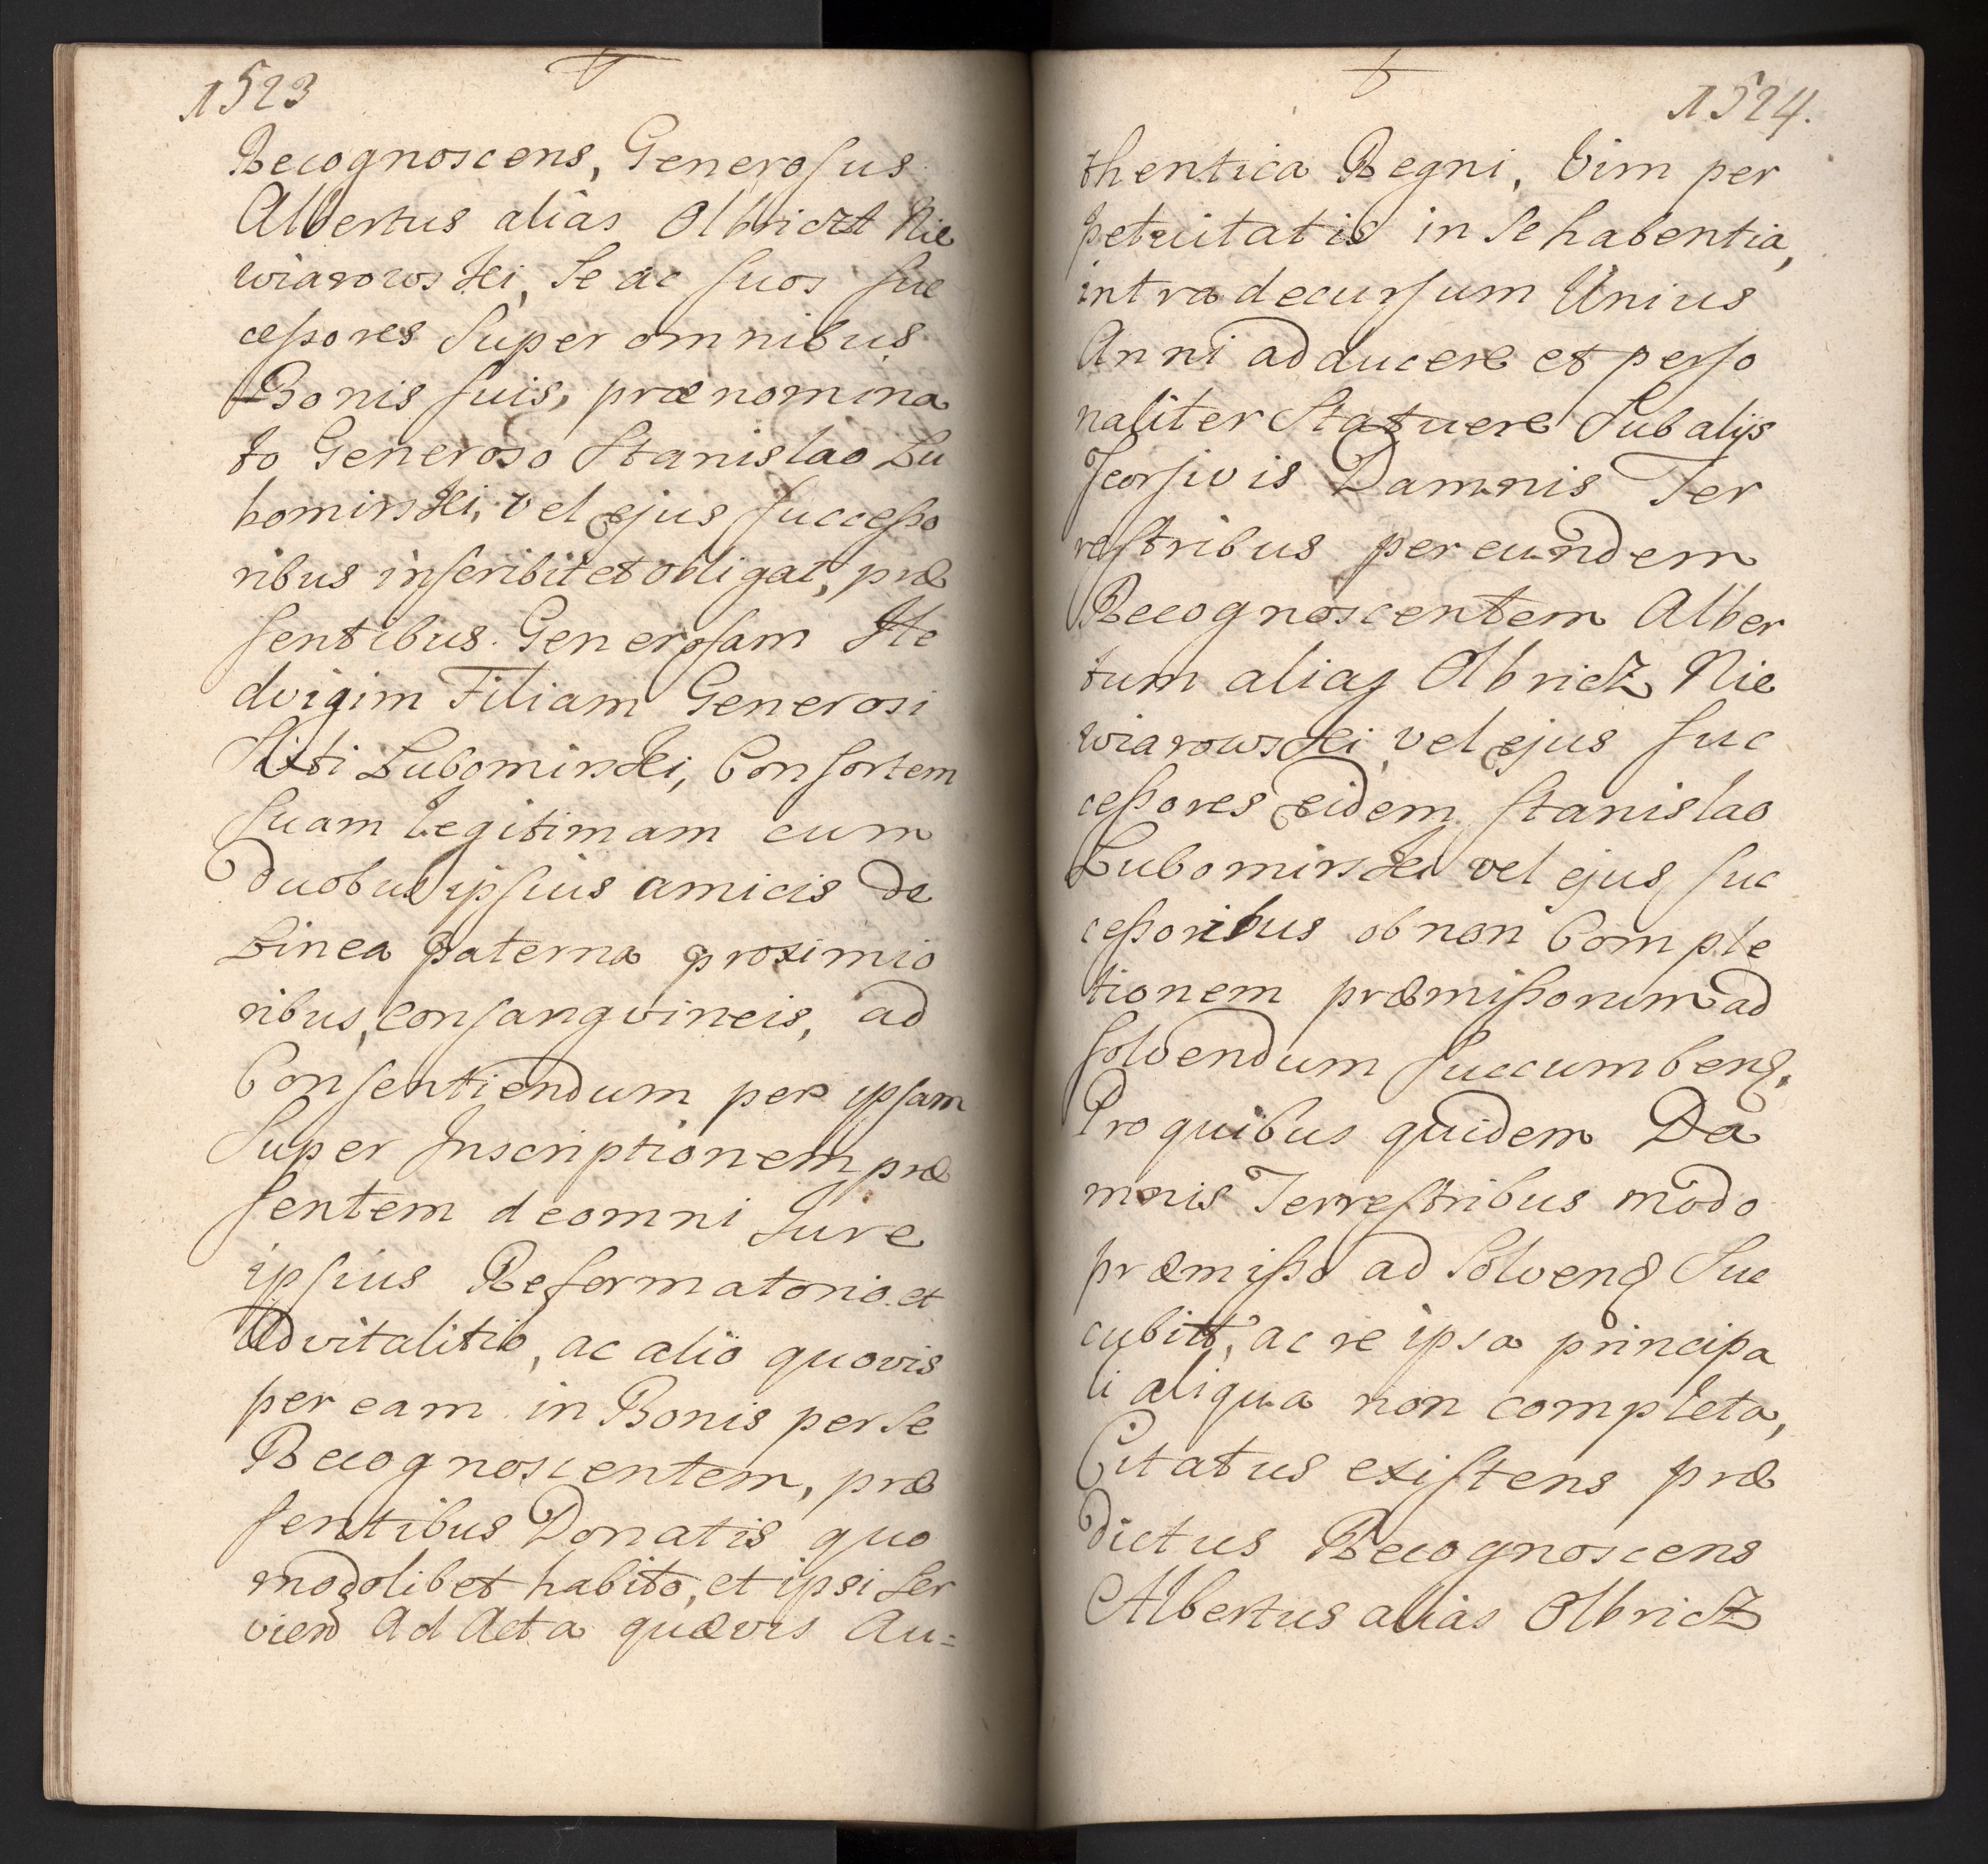 1523
Recognoscens, Generosus
Albertus alias Olbricht Nie
wiarowski, Se ac suos suc
cessores Super omnibus
Bonis suis, prænomina
to Generoso Stanislao Lu
bomirski, vel ejus successo
ribus inscribit et obligat, præ
sentibus Generosam He
dvigim Filiam Generosi
Sixti Lubomirski, Consortem
suam Legitimam cum
duobus ipsius amicis de
Linea paterna proximio
ribus, consangvineis, ad
Consentiendum per ipsam
Super Inscriptionem præ
sentem de omni Jure
ipsius Reformatorio et
Advitalitio, ac alio quovis
per eam in Bonis per Se
Recognoscentem, præ
sentibus Donatis quo
modolibet habito, et ipsi Ser
vien Ad Acta quævis Au=
1524.
thentica Regni, Vim per
petuitatis in Se habentia,
intra decursum Unius
Anni adducere et perso
naliter Statuere Sub alijs
seorsivis Damnis Ter
restribus per eundem
Recognoscentem Alber
tum alias Olbricht Nie
wiarowski, vel ejus suc
cessores eidem Stanislao
Lubomirski vel ejus suc
cessoribus ob non Comple
tionem præmissorum ad
solvendum succumben.
Pro quibus quidem Da
mnis Terrestribus modo
præmisso ad Solven Suc
cubitt, ac re ipsa principa
li aliqua non completa,
Citatus existens præ
dictus Recognoscens
Albertus alias Olbricht